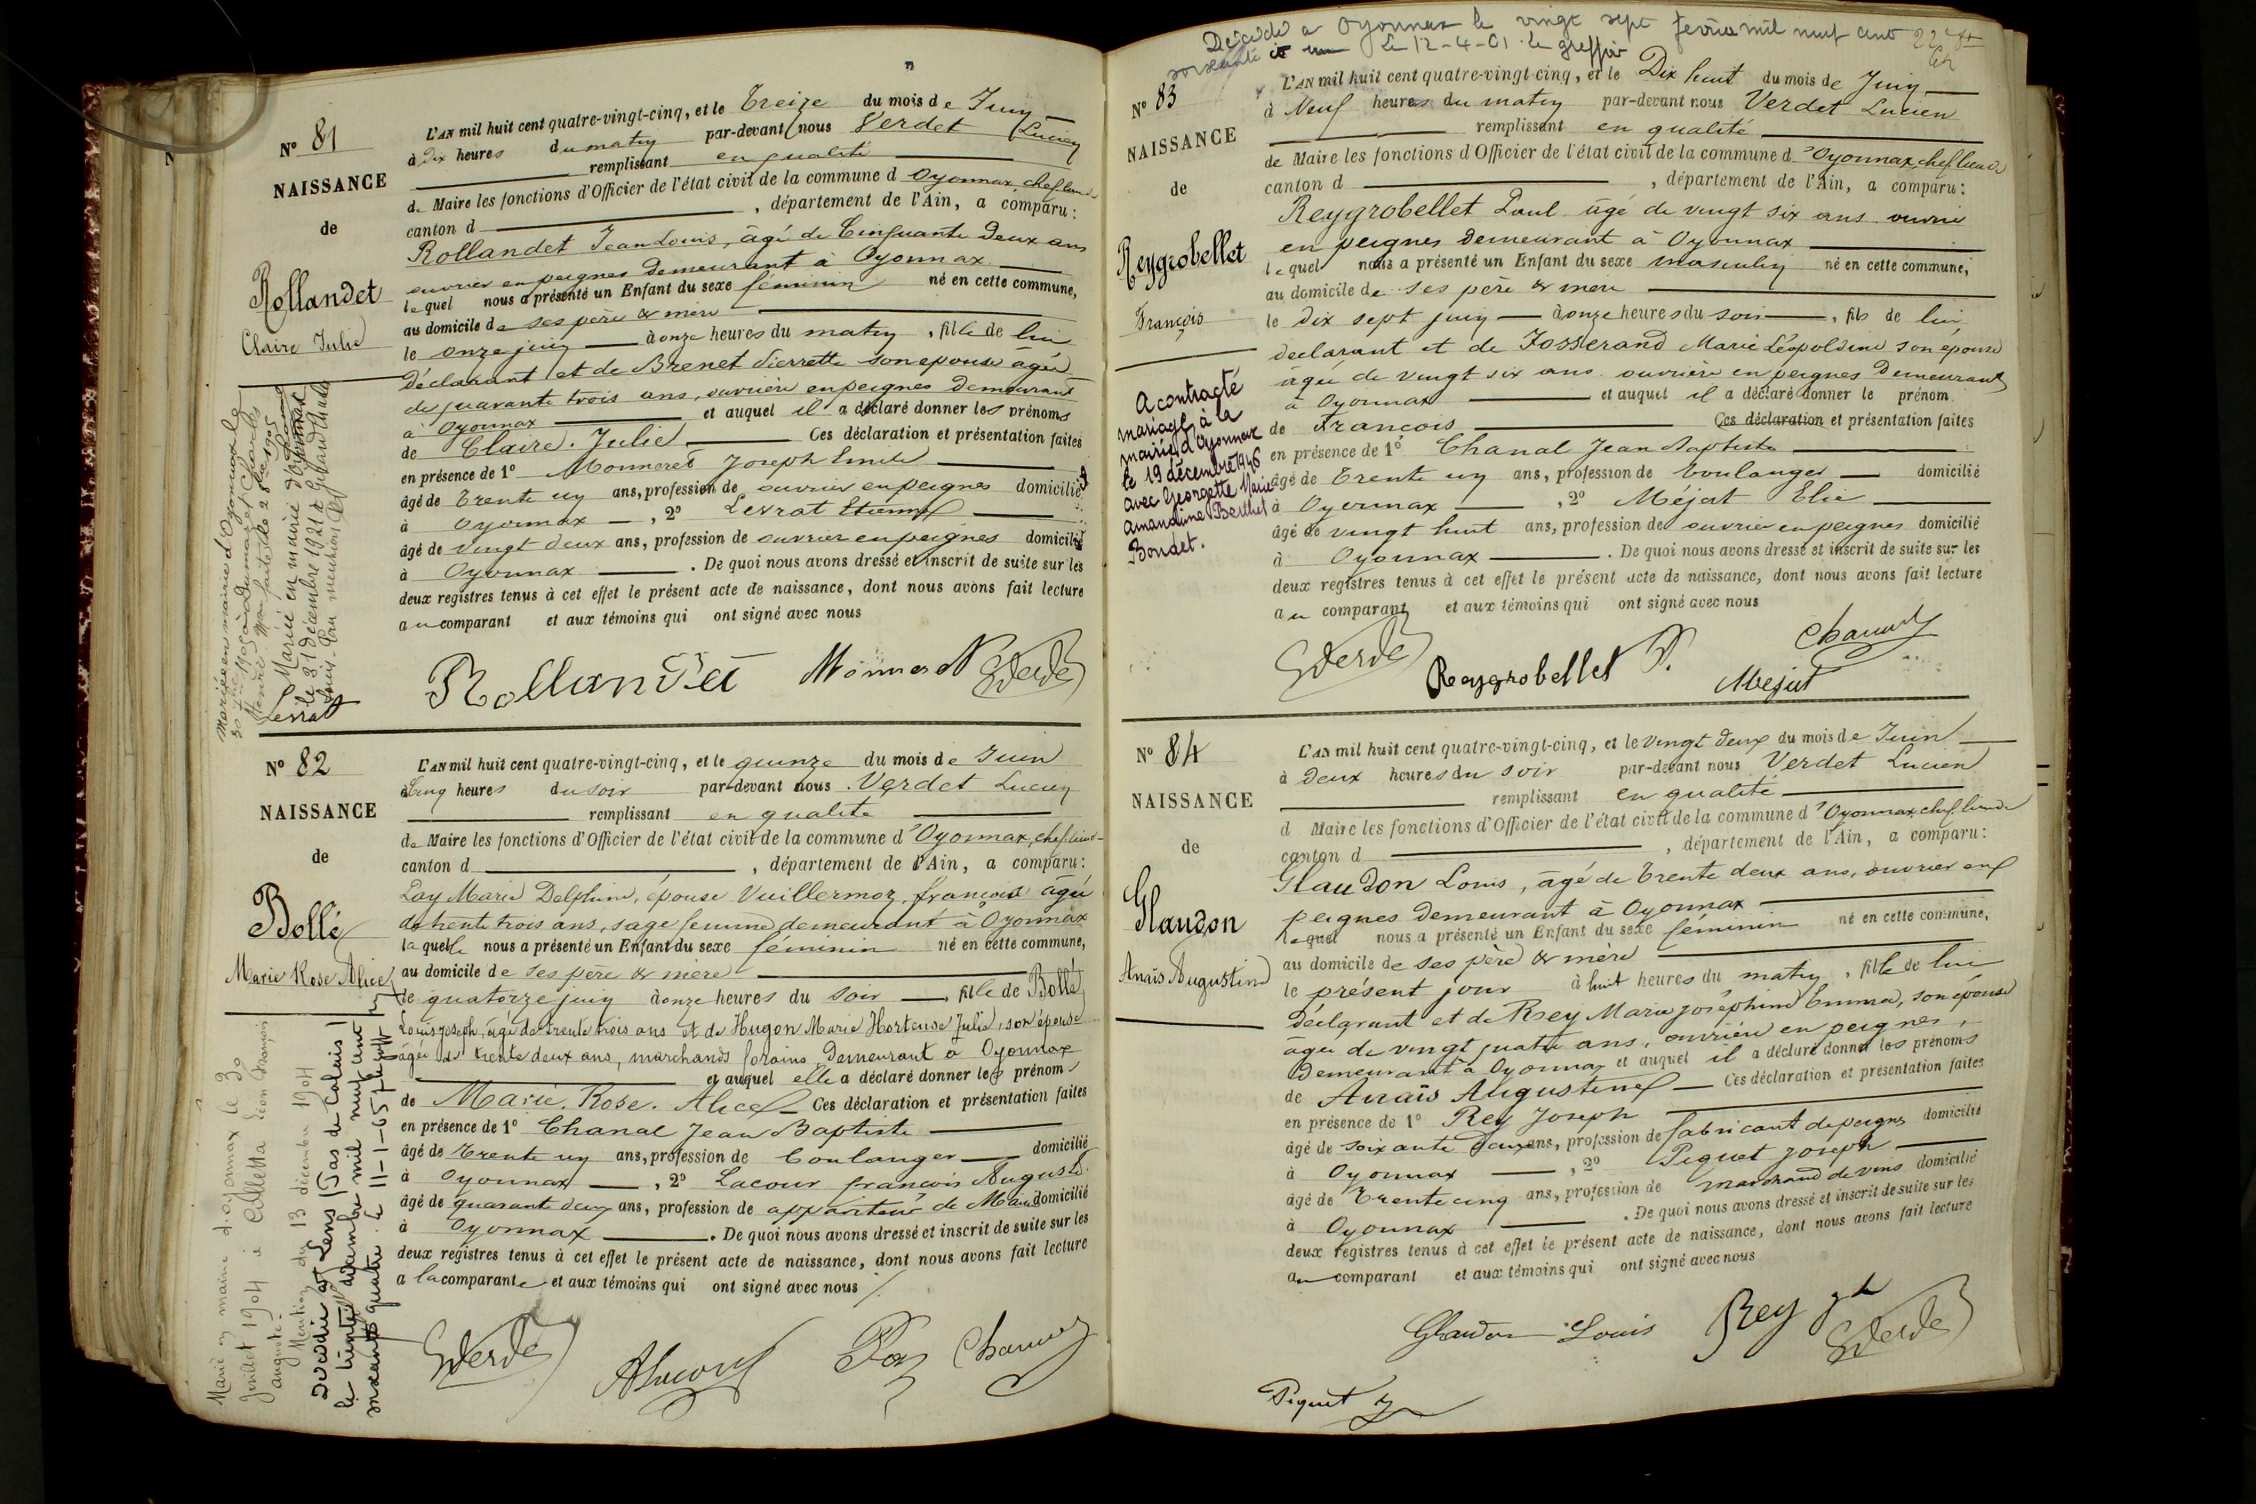 N° 81
NAISSANCE
de
Rollandet
Claire Julie
L'AN mil huit cent quatre-vingt-cinq, et le Treize du mois de Juin
à Dix heures du matin par-devant nous Verdet Lucien
remplissant en qualité
de Maire les fonctions d'Officier de l'état civil de la commune d Oyonnax, chef lieu de
canton d , département de l'Ain, a comparu:
Rollandet Jean Louis, âgé de Cinquante deux ans
ouvrier en peignes demeurant à Oyonnax
lequel nous a présenté un Enfant du sexe féminin né en cette commune,
au domicile de ses père & mère
le onze juin à onze heures du matin, fille de lui
déclarant et de Brenet Pierrette son épouse âgée
de quarante trois ans, ouvrière en peignes demeurant
à Oyonnax et auquel il a déclaré donner les prénoms
de Claire. Julie Ces déclaration et présentation faites
en présence de 1° Monneret Joseph Emile
âgé de Trente un ans, profession de ouvrier en peignes domicilié
à Oyonnax , 2° Levrat Etienne
âgé de vingt deux ans, profession de ouvrier en peignes domicilié
à Oyonnax . De quoi nous avons dressé et inscrit de suite sur les
deux registres tenus à cet effet le présent acte de naissance, dont nous avons fait lecture
au comparant et aux témoins qui ont signé avec nous
Mariée en mairie d'Oyonnax le
Mariée en mairie d'Oyonnax
le 31 décembre 1921 à
Levrat
Rollandet Monneret Verdet
N° 82
NAISSANCE
de
Bollé
Marie Rose Alice
L'AN mil huit cent quatre-vingt-cinq, et le quinze du mois de Juin
à Cinq heures du soir par-devant nous Verdet Lucien
remplissant en qualité
de Maire les fonctions d'Officier de l'état civil de la commune d'Oyonnax, chef lieu de
canton d , département de l'Ain, a comparu:
Pay Marie Delphine, épouse Vuillermoz, françois âgée
de trente trois ans, sage femme demeurant à Oyonnax
laquelle nous a présenté un Enfant du sexe féminin né en cette commune,
au domicile de ses père & mère
le quatorze juin à onze heures du soir , fille de Bollé
Louis joseph, âgé de trente trois ans et de Hugon Marie Hortense Julie, son épouse
âgée de trente deux ans, marchands forains, demeurant à Oyonnax
et auquel elle a déclaré donner les prénoms
de Marie. Rose. Alice Ces déclaration et présentation faites
en présence de 1° Chanal Jean Baptiste
âgé de Trente un ans, profession de boulanger domicilié
à Oyonnax , 2° Lacour françois Auguste
âgé de quarante deux ans, profession de appariteur de Mairie domicilié
à Oyonnax . De quoi nous avons dressé et inscrit de suite sur les
deux registres tenus à cet effet le présent acte de naissance, dont nous avons fait lecture
a la comparante et aux témoins qui ont signé avec nous
Marié en mairie d'Oyonnax le 30
Juillet 1904 à Colletta Léon François
Auguste.
Mention du 13 décembre 1904
Décédée à Lens (Pas de Calais)
le trente décembre mil neuf cent
soixante quatre. le 11-1-65 le greff
Verdet ALacour Pay Chanal
Décédé à Oyonnax le vingt sept février mil neuf cent
soixante et un le 12-4-61 le greffier
N° 83
NAISSANCE
de
Reygrobellet
François
L'AN mil huit cent quatre-vingt-cinq, et le Dix huit du mois de Juin
à Neuf heures du matin par-devant nous Verdet Lucien
remplissant en qualité
de Maire les fonctions d'Officier de l'état civil de la commune d'Oyonnax, chef lieu de
canton d , département de l'Ain, a comparu:
Reygrobellet Paul âgé de vingt six ans ouvrier
en peignes demeurant à Oyonnax
lequel nous a présenté un Enfant du sexe masculin né en cette commune,
au domicile de ses père & mère
le dix sept juin à onze heures du soir , fils de lui
déclarant et de Josserand Marie Léopoldine son épouse
âgée de vingt six ans ouvrière en peignes demeurant
à Oyonnax et auquel il a déclaré donner le prénom
de François Ces déclaration et présentation faites
en présence de 1° Chanal Jean Baptiste
âgé de Trente un ans, profession de boulanger domicilié
à Oyonnax , 2° Méjat Elie
âgé de vingt huit ans, profession de ouvrier en peignes domicilié
à Oyonnax . De quoi nous avons dressé et inscrit de suite sur les
deux registres tenus à cet effet le présent acte de naissance, dont nous avons fait lecture
au comparant et aux témoins qui ont signé avec nous
A contracté
mariage, à la
mairie d'Oyonnax
le 19 décembre 1946
avec Georgette Marie
Amandine Berthet
Bondet.
Verdet Reygrobellet P. Chanal
Mejat
N° 84
NAISSANCE
de
Glaudon
Anaïs Augustine
L'AN mil huit cent quatre-vingt-cinq, et le vingt deux du mois de Juin
à deux heures du soir par-devant nous Verdet Lucien
remplissant en qualité
d Maire les fonctions d'Officier de l'état civil de la commune d'Oyonnax, chef lieu de
canton d , département de l'Ain, a comparu:
Glaudon Louis, âgé de Trente deux ans, ouvrier en
peignes demeurant à Oyonnax
lequel nous a présenté un Enfant du sexe féminin né en cette commune,
au domicile de ses père & mère
le présent jour à huit heures du matin, fille de lui
déclarant et de Rey Marie Joséphine Emma, son épouse
âgée de vingt quatre ans, ouvrière en peignes,
demeurant à Oyonnax et auquel il a déclaré donner les prénoms
de Anaïs Augustine Ces déclaration et présentation faites
en présence de 1° Rey Joseph
âgé de soixante deux ans, profession de fabricant de peignes domicilié
à Oyonnax , 2° Piquet Joseph
âgé de Trente cinq ans, profession de marchand de vins domicilié
à Oyonnax . De quoi nous avons dressé et inscrit de suite sur les
deux registres tenus à cet effet le présent acte de naissance, dont nous avons fait lecture
au comparant et aux témoins qui ont signé avec nous
Glaudon Louis Rey jh Verdet
Piquet J